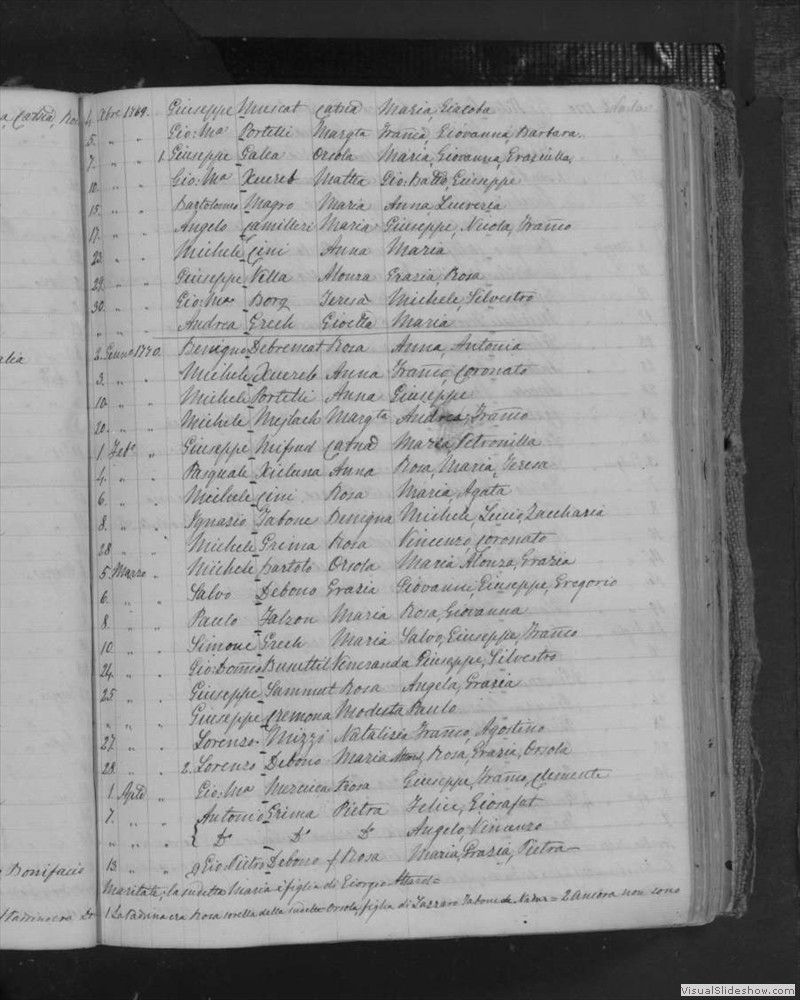 4. Xbre 1769. Giuseppe Muscat Catña Maria, Giacoba
5. " " Gio: Mª Portelli Margta Franca, Giovanna Barbara.
7. " " 1. Giuseppe Galea Orsola Maria, Giovanna, Graziulla,
10. " " Gio: Mª Xuereb Mattia Gio: Batta, Giuseppe
15. " " Bartolomeo Magro Maria Anna, Lucrezia
17. " " Angelo Camilleri Maria Giuseppe, Nicola, Franco
23. " " Michele Cini Anna Maria
29. " " Giuseppe Vella Alonza Grazia, Rosa
30. " " Gio: Mª Borg Teresa Michele, Silvestro
" " " Andrea Grech Gioetta Maria
2. Genno 1770. Benigno Debrencat Rosa Anna, Antonia
3. " " Michele Xuereb Anna Franco, Coronato
10. " " Michele Portelli Anna Giuseppe
20. " " Michele Mejlach Margta Andrea, Franco
1. Feb° " Giuseppe Mifsud Catña Maria, Petronilla
4. " " Pasquale Xicluna Anna Rosa, Maria, Teresa
6. " " Michele Cini Rosa Maria, Agata
8. " " Ignazio Tabone Benigna Michele, Lucio, Zaccharia
28 " " Michele Grima Rosa Vincenzo, Coronato
5. Marzo " Michele Bartolo Orsola Maria Alonza, Grazia
6. " " Salvo Debono Grazia Giovanni, Giuseppe, Gregorio
8. " " Paulo Falzon Maria Rosa, Giovanna
10 " " Simone Grech Maria Salvo, Giuseppe, Franco
24. " " Gio: Domco Busuttil Veneranda Giuseppe, Silvestro
25 " " Giuseppe Sammut Rosa Angela, Grazia
" " " Giuseppe Cremona Modesta Paulo
27. " " Lorenzo Mizzi Natalizia Franco, Agostino
28. " " 2. Lorenzo Debono Maria Attard, Rosa, Grazia, Orsola
1. Aple " Gio: Mª Mercieca Rosa Giuseppe, Franco, Clemente
7. " " Antonio Grima Pietra Felice, Giosafat
" " " { D° D° D° Angelo, Vincenzo
13 " " Gio: Pietro Debono f. Rosa Maria, Grazia, Pietra
Maritate; la sudetta Maria è figlia di Giorgio Attard =
1 La Padrina era Rosa sorella della sudetta Orsola, figlia di Lazzaro Tabone de Nadur = 2 Ancora non sono
Bonifacio
VisualSlideshow.com